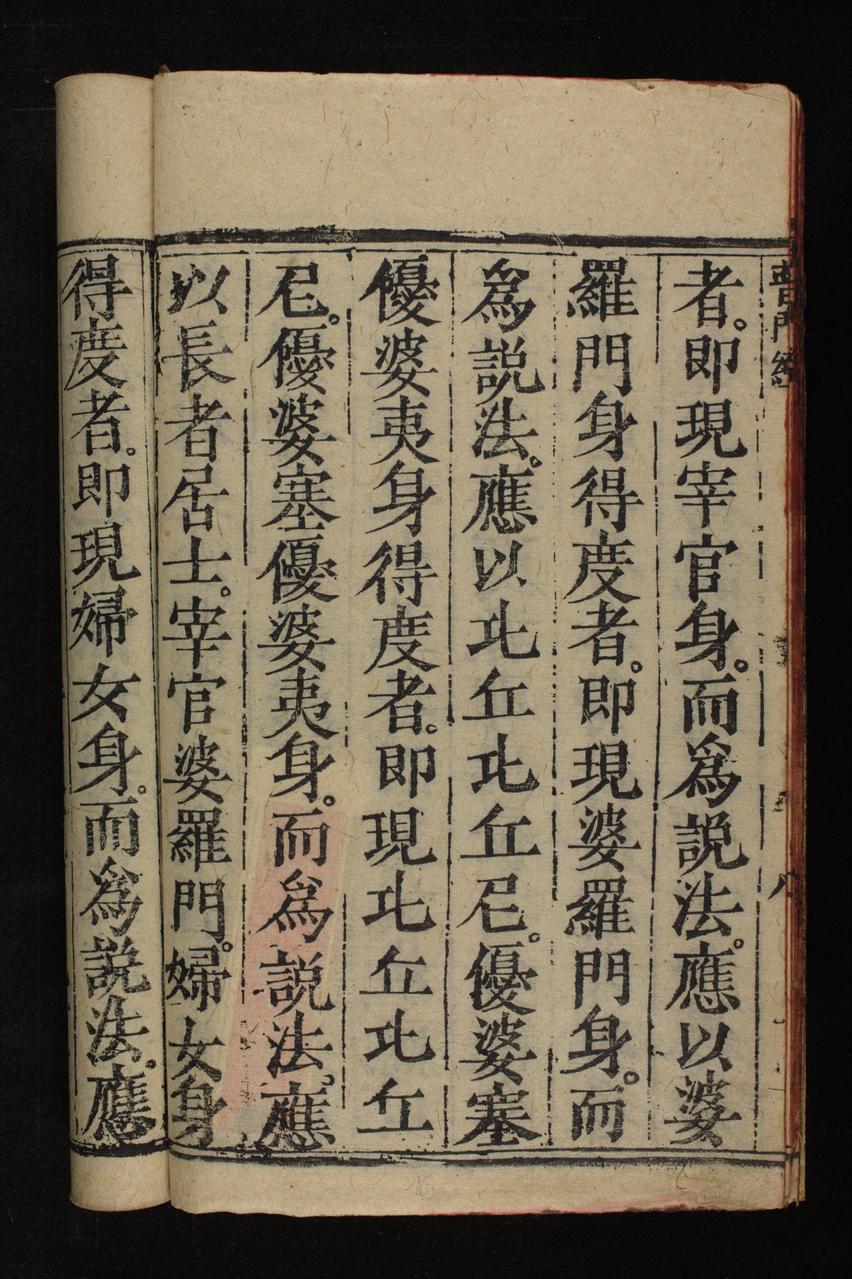 普門經
八
者。即現宰官身。而為説法。應以婆
羅門身得度者。即現婆羅門身。而
為説法。應以比丘比丘尼。優婆塞
優婆夷身得度者。即現比丘比丘
尼。優婆塞優婆夷身。而為説法。應
以長者居士。宰官婆羅門。婦女身
得度者。即現婦女身。而為説法。應